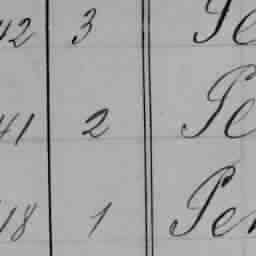 42 3 Pe
41 2 Pe
18 1 Per